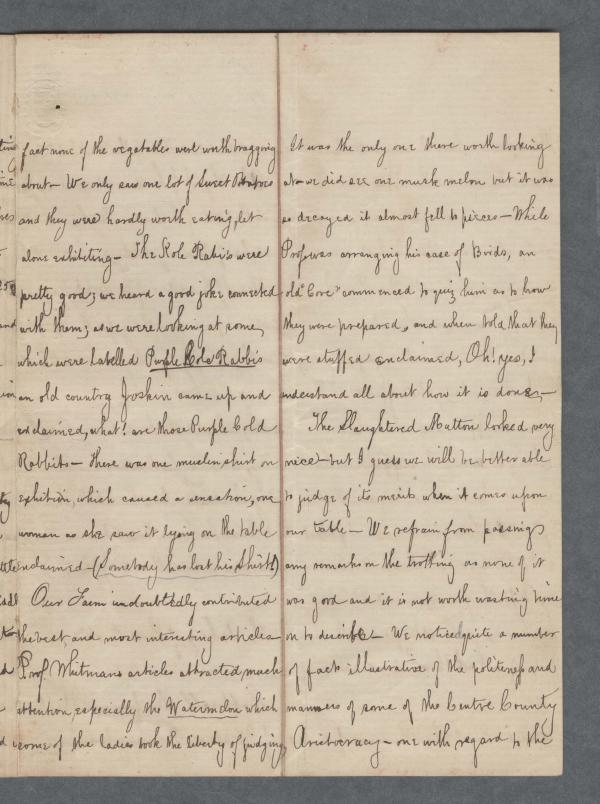 fact none of the vegetables were worth bragging
about — We only saw one lot of Sweet Potatoes
and they were hardly worth eating, let
alone exhibiting — The Kole Rabi's were
pretty good; we heard a good joke connected
with them; as we were looking at some,
which were labelled Purple Cole Rabbis
an old country Joskin came up and
exclaimed, what! are those Purple Cold
Rabbits — there was one muslin shirt on
exhibition, which caused a sensation, one
woman as she saw it lying on the table
exclaimed — (Somebody has lost his Shirt)
Our Farm undoubtedly contributed
the best and most interesting articles —
Prof. Whitman's articles attracted much
attention, especially the Watermelon which
some of the ladies took the liberty of judging,
It was the only one there worth looking
at — we did see one musk melon but it was
so decayed it almost fell to pieces — While
Prof. was arranging his case of Birds, an
old "Cove" commenced to quiz him as to how
they were prepared, and when told that they
were stuffed exclaimed, Oh! yes, I
understand all about how it is done, —
The Slaughtered Mutton looked very
nice — but I guess we will be better able
to judge of its merits when it comes upon
our table — We refrain from passing
any remarks on the trotting as none of it
was good and it is not worth wasting time
on to describe — We noticed quite a number
of facts illustrative of the politeness and
manners of some of the Centre County
Aristocracy — one with regard to the